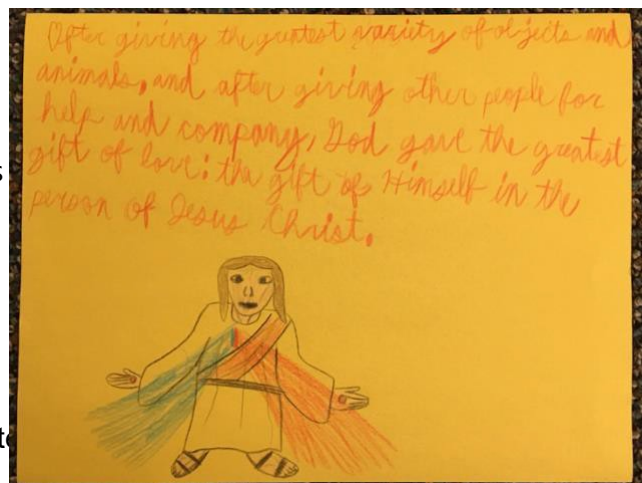 After giving the greatest variety of objects and
animals, and after giving other people for
help and company, God gave the greatest
gift of love: the gift of Himself in the
person of Jesus Christ.
s
to